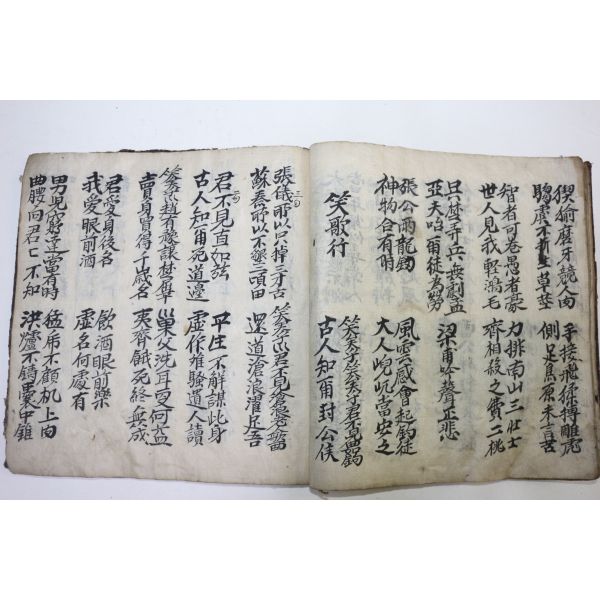 猰貐磨牙競人肉
騶虞不折生草莖
手接飛猱搏雕虎
側足焦原未言苦
智者可卷愚者豪
世人見我輕鴻毛
力排南山三壯士
齊相殺之費二桃
吳楚弄兵無劇孟
亞夫咍爾徒爲勞
梁甫吟聲正悲
張公兩龍劍
神物合有時
風雲感會起釣徒
大人㟞屼當安之
笑歌行
笑矣乎笑矣乎君不見曲如鉤
古人知爾封公侯
張儀所以只掉三寸舌
蘇秦所以不墾二頃田
笑矣乎君不見滄浪
還道滄浪濯足吾
君不見直如弦
古人知爾死道邊
平生不解謀此身
虛作離騷遣人讀
笑矣乎趙有豫讓楚屈
賣身買得千歲名
巢父洗耳又何益
夷齊餓死終無成
君愛身後名
我愛眼前酒
飲酒眼前樂
虛名何處有
男兒窮達當有時
曲腰向君〻不知
猛虎不顧机上肉
洪爐不鑄囊中錐